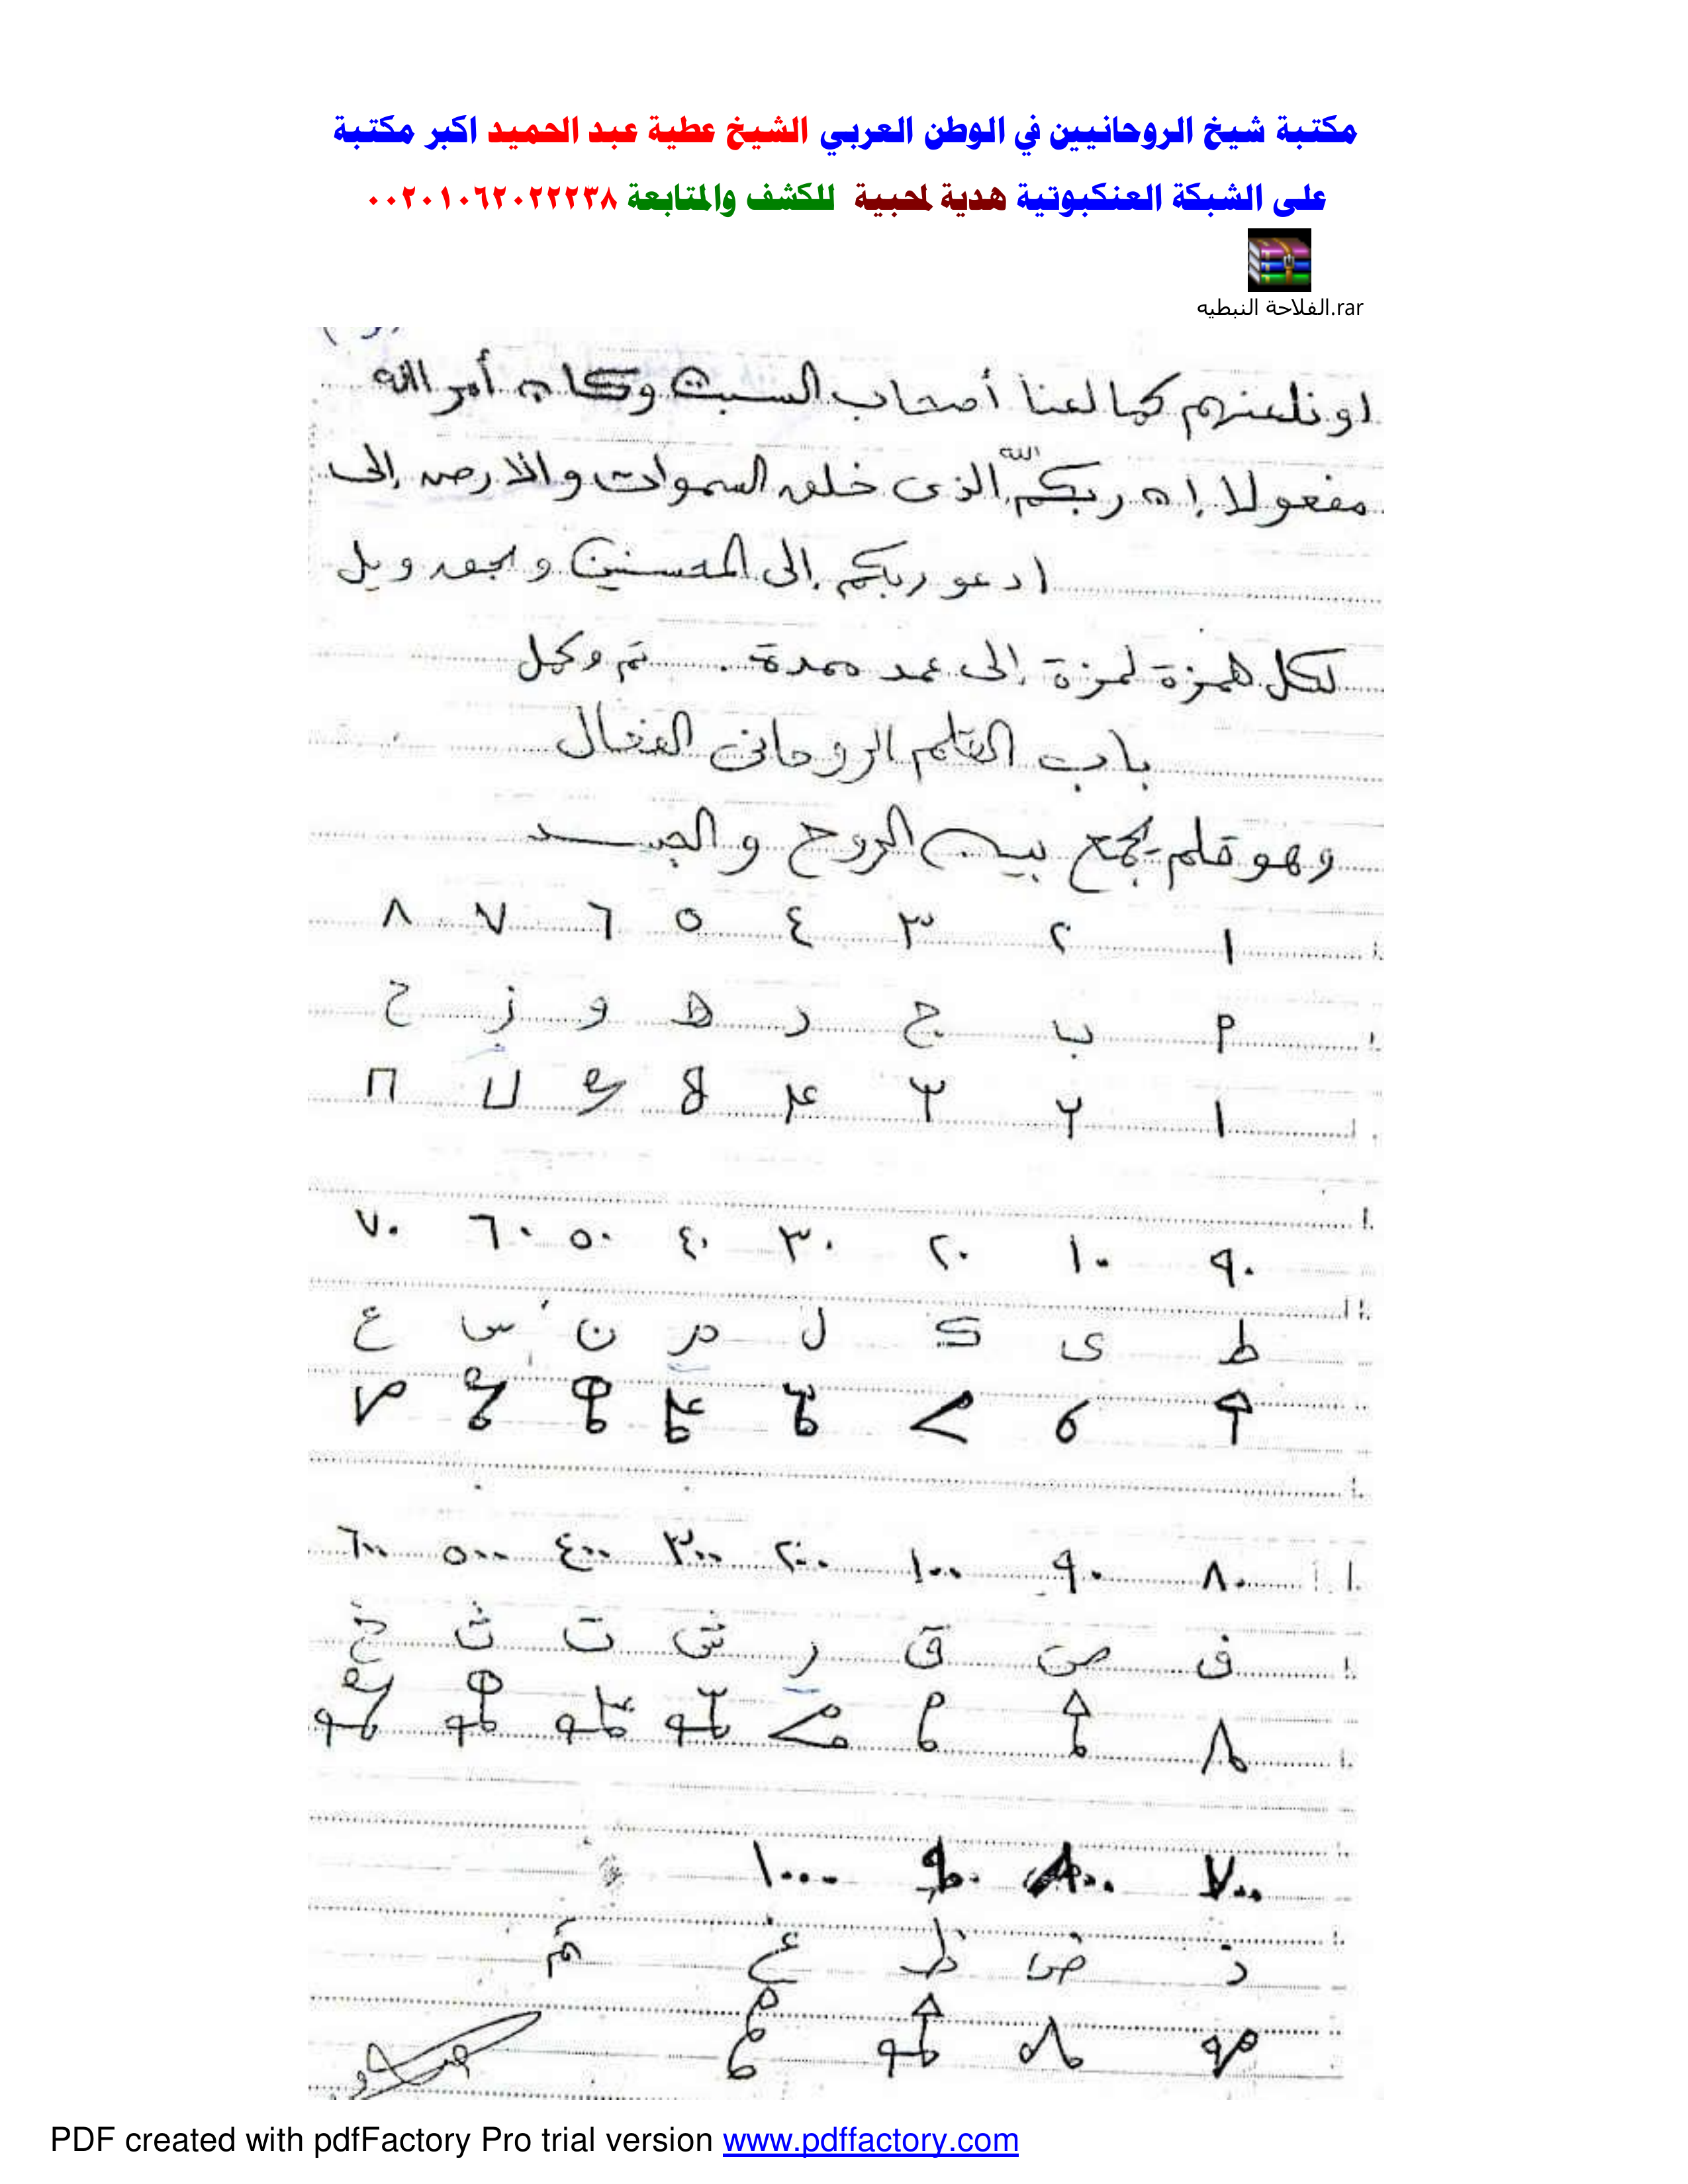 مكتبة شيخ الروحانيين في الوطن العربي الشيخ عطية عبد الحميد اكبر مكتبة
على الشبكة العنكبوتية هدية لمحبية للكشف والمتابعة ٠٠٢٠١٠٦٢٠٢٢٢٣٨
الفلاحة النبطيه.rar
او نلعنهم كما لعنا أصحاب السبت وكان أمر الله
مفعولا إن ربكم الله الذى خلق السموات والارض إلى
ادعو ربكم إلى المحسنين وبحق ويل
لكل همزة لمزة إلى عمد ممددة . تم وكمل
باب القلم الروحانى الفعال
وهو قلم يجمع بين الروح والجسد
١ ٢ ٣ ٤ ٥ ٦ ٧ ٨
ب ج د ھ و ز ح
٩٠ ١٠ ٢٠ ٣٠ ٤٠ ٥٠ ٦٠ ٧٠
ط ى ك ل م ن س ع
٨٠ ٩٠ ١٠٠ ٢٠٠ ٣٠٠ ٤٠٠ ٥٠٠ ٦٠٠
ف ص ق ر ش ت ث خ
٧٠٠ ٨٠٠ ٩٠٠ ١٠٠٠
ذ ض ظ غ تم
PDF created with pdfFactory Pro trial version www.pdffactory.com